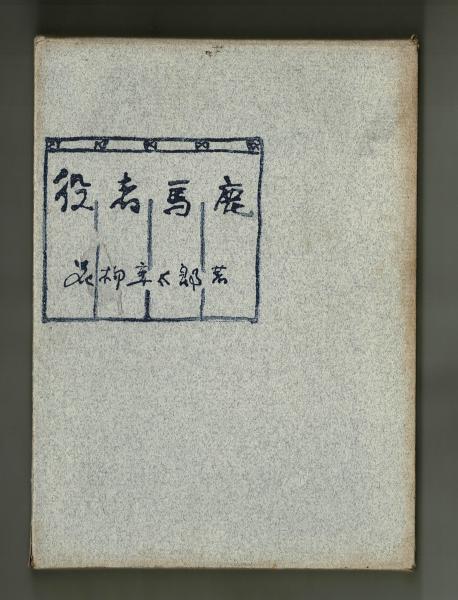 役者馬鹿
花柳章太郎著